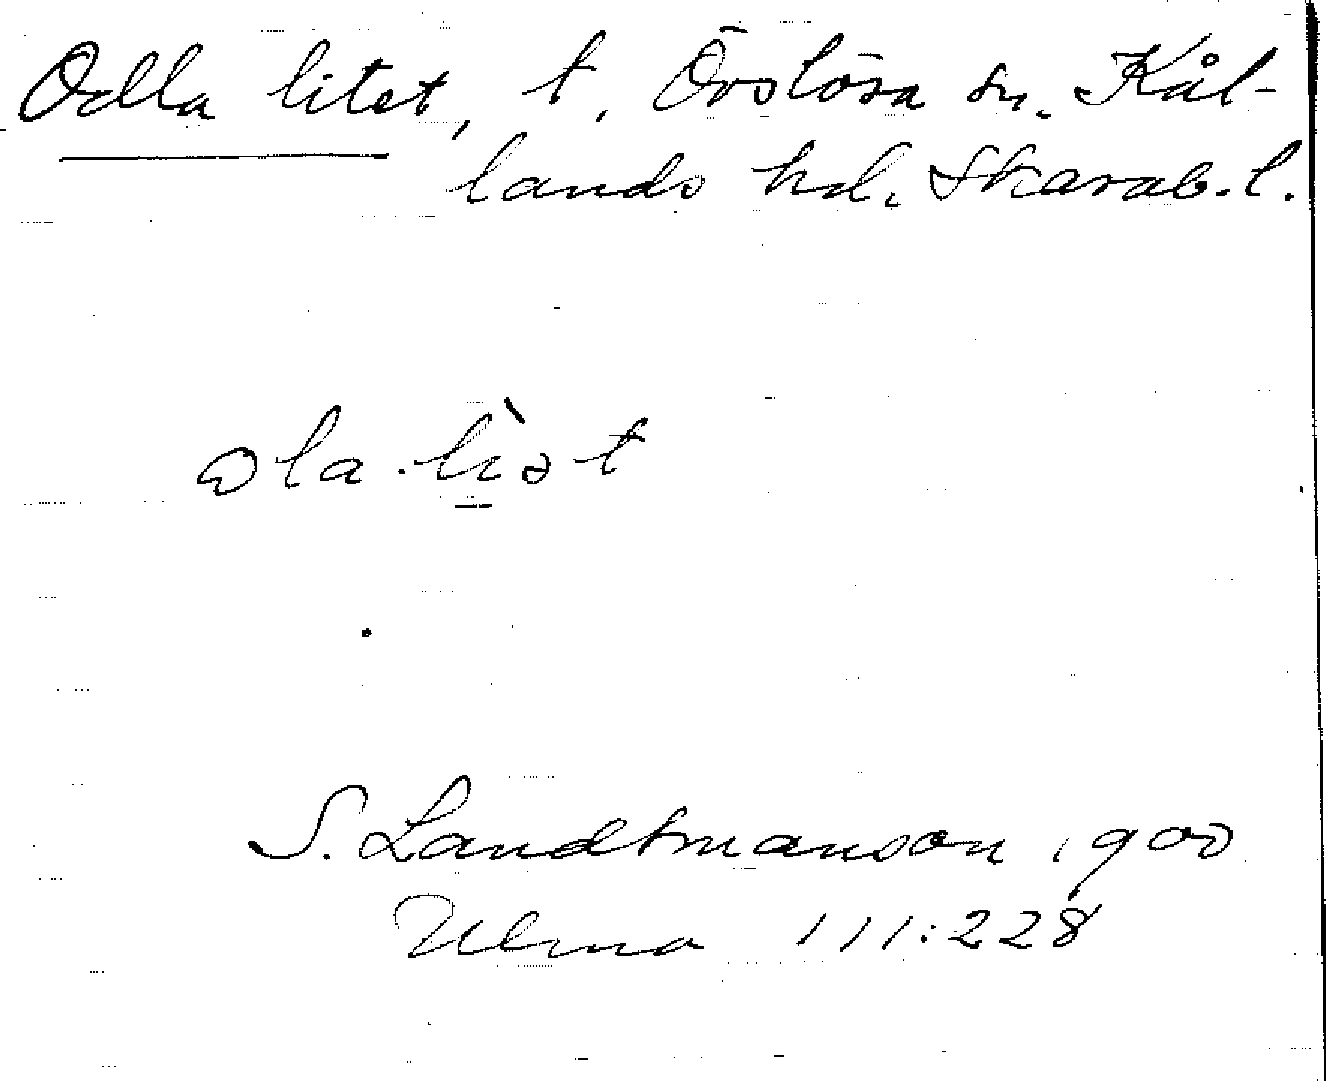 Odla litet, t. Örslösa sn. Kål-
lands hd. Skarab.l.
ola.lìət
S. Landtmanson 1900
Ulma 111:228